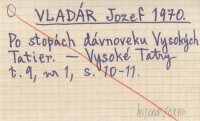 VLADÁR Jozef 1970.
Po stopách dávnoveku Vysokých
Tatier. — Vysoké Tatry
t. 9, nr 1, s. 10-11.